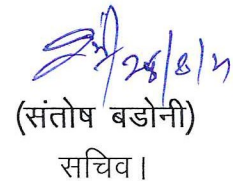 28/8/21
(संतोष बडोनी)
सचिव।